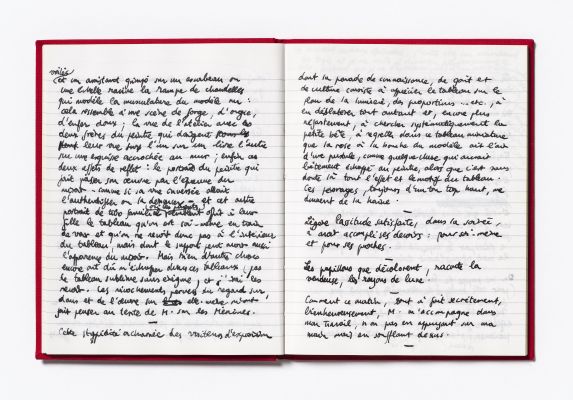 voilés
et un amistant grimpé sur un escabeau ou
une échelle ravive la rampe de chandelles
qui modèle la musculature du modèle nu :
cela ressemble à une scène de forge, d'orgie,
d'enfer doux ; la vue de l'atelier avec les
deux frères du peintre qui dirigent
leur vue l'un sur un livre l'autre
sur une esquisse accrochée au mur ; enfin ces
deux effets de reflet : le portrait du peintre qui
fait passer son œuvre par l'épreuve du
miroir comme si sa vue inversée allait
l'authentifier ou la — et cet autre
portrait de famille offrir à leur
fille le tableau qu'on est soi-même en train
de voir et qu'on ne revoit donc pas à l'intérieur
du tableau, mais dont le support peut avoir aussi
l'apparence du miroir. Mais bien d'autres choses
encore ont dû m'échapper dans ces tableaux,
le tableau sublime sans énigme, et j'irai les
revoir. Les ricochements pervers du regard sur,
dans et de l'œuvre sur elle-même m'ont
fait penser au texte de M. sur les Ménines.
Cette stupidité acharnée des visiteurs d'exposition
dont la parade de connaissance, de goût et
de culture consiste à apprécier le tableau sur le
plan de la lumière, des proportions ... etc., à
en déblatérer tout autant et, encore plus
injustement, à chercher systématiquement la
petite bête, à regretter dans ce tableau miniature
que la rose ou la bouche du modèle ait l'air
d'une pustule, comme quelque chose qui aurait
bêtement échappé au peintre, alors que c'est sans
doute là tout l'effet et le motif du tableau.
Ces jacassages, toujours d'un ton trop haut, me
donnent de la haine.
Légère lassitude satisfaite, dans la soirée,
d'avoir accompli ses devoirs : pour soi-même
et pour ses proches.
Les papillons que décolorent, raconte la
vendeuse, les rayons de lune.
Comment ce matin, tout à fait secrètement,
M. m'accompagne dans
mon travail, non pas en appuyant sur ma
main mais en soufflant dessus.